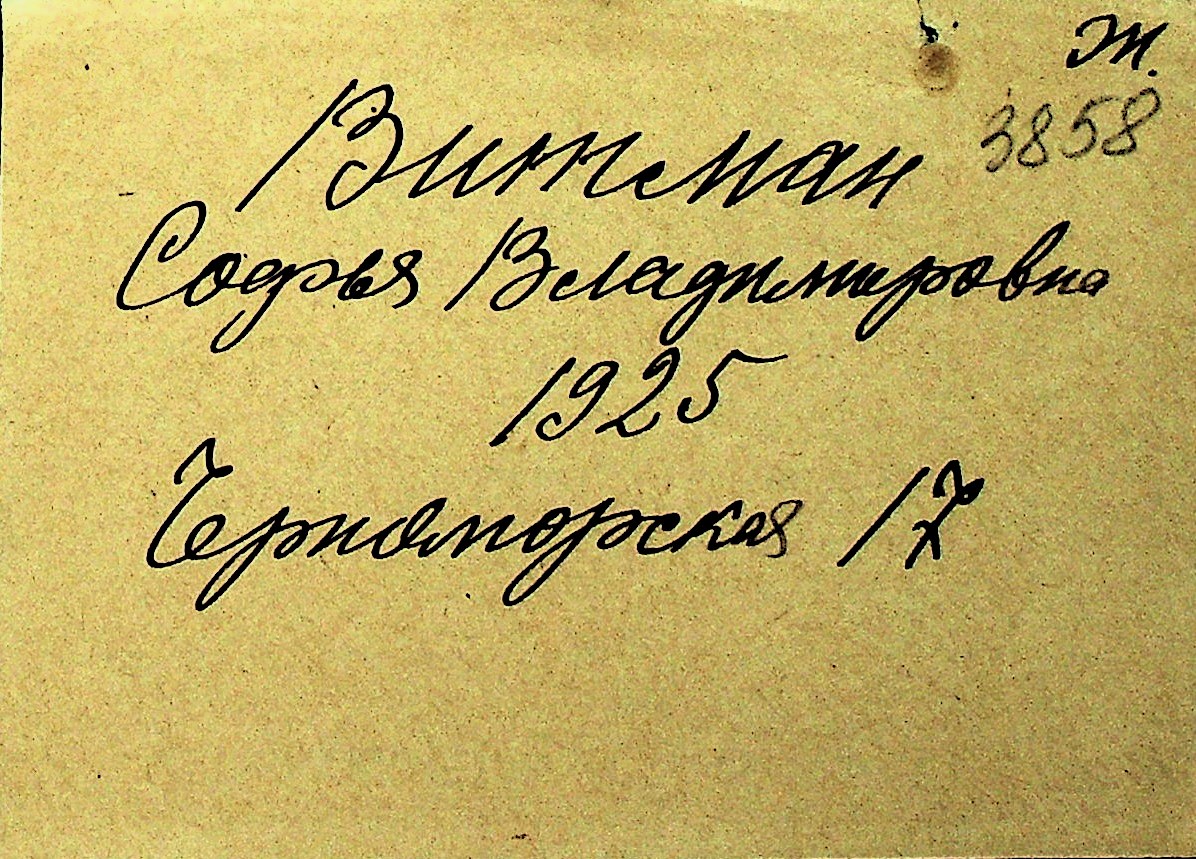 Ж.
3858
Софья Владимировна
1925
Черноморская 17